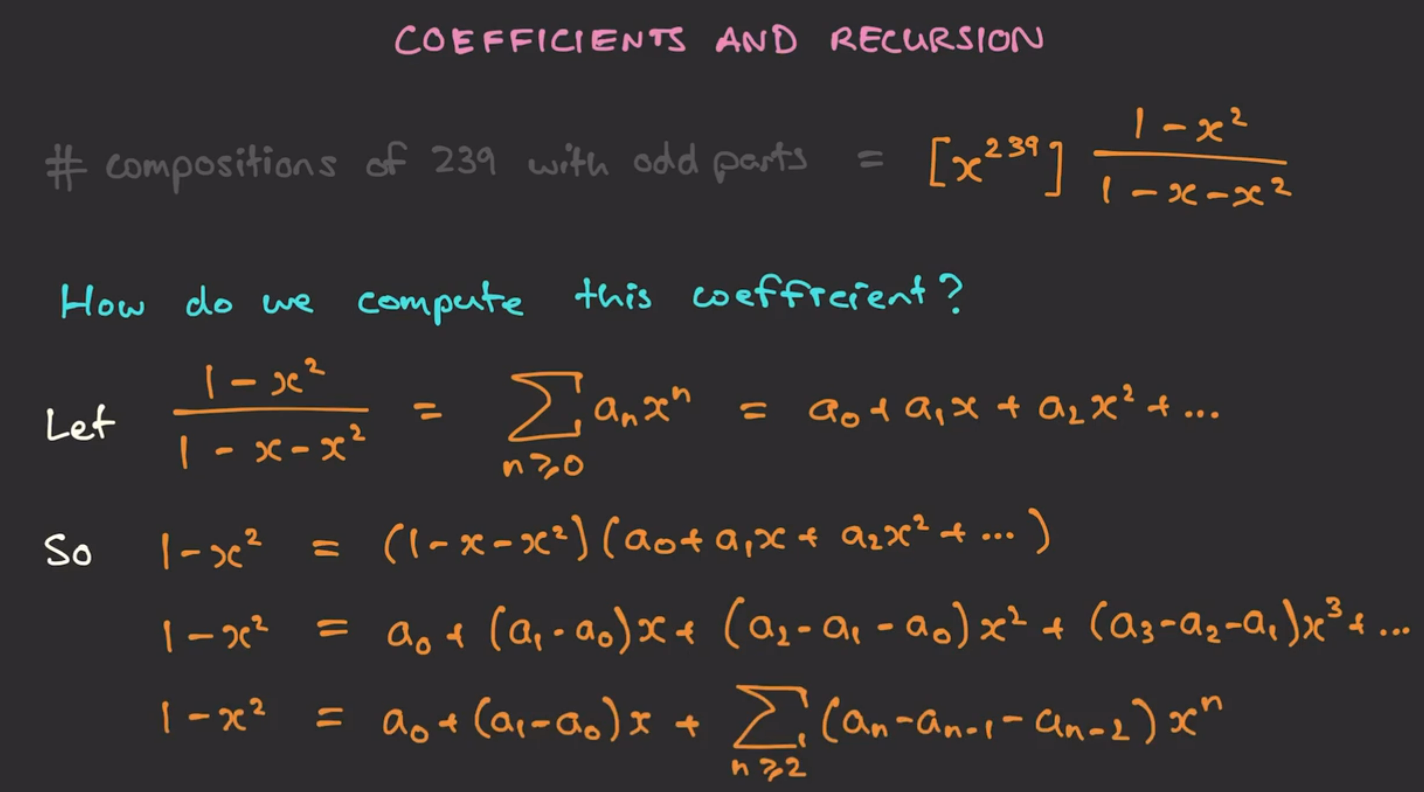 COEFFICIENTS AND RECURSION
# compositions of 239 with odd parts = [x^239] (1 - x^2)/(1 - x - x^2)
How do we compute this coefficient?
Let (1 - x^2)/(1 - x - x^2) = ∑_{n≥0} a_n x^n = a_0 + a_1 x + a_2 x^2 + ...
So 1 - x^2 = (1 - x - x^2)(a_0 + a_1 x + a_2 x^2 + ...)
1 - x^2 = a_0 + (a_1 - a_0)x + (a_2 - a_1 - a_0)x^2 + (a_3 - a_2 - a_1)x^3 + ...
1 - x^2 = a_0 + (a_1 - a_0)x + ∑_{n≥2} (a_n - a_{n-1} - a_{n-2}) x^n